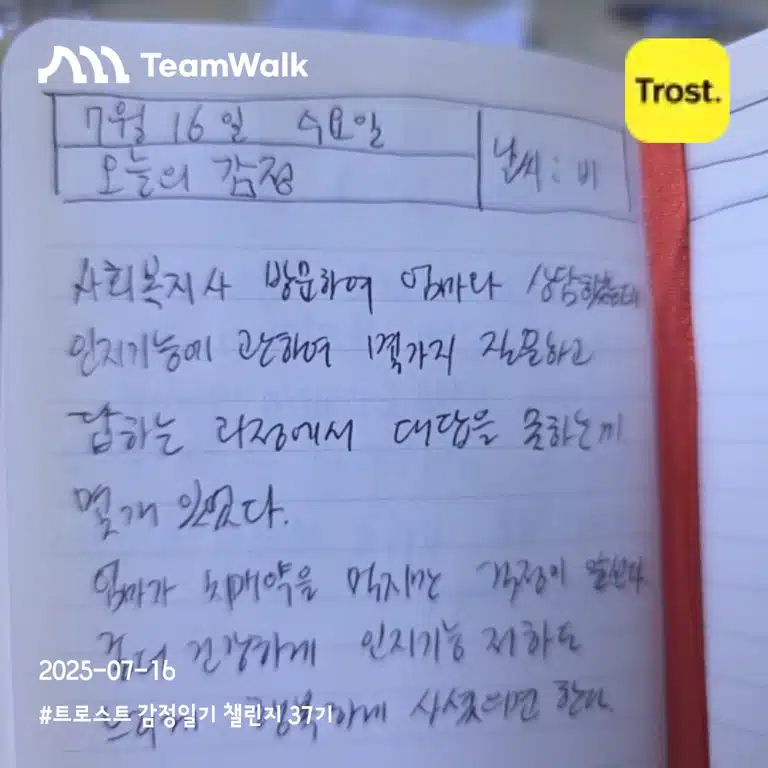 TeamWalk
Trost.
7월 16일 수요일
오늘의 감정
날씨 : 비
사회복지사 방문하여 엄마와 상담하였는데
인지기능에 관하여 몇가지 질문하고
답하는 과정에서 대답을 못하는게
몇개 있었다.
엄마가 치매약을 먹지만 걱정이 앞선다.
좀더 건강하게 인지기능 저하도
2025-07-16
행복하게 사셨으면 한다.
#트로스트 감정일기 챌린지 37기